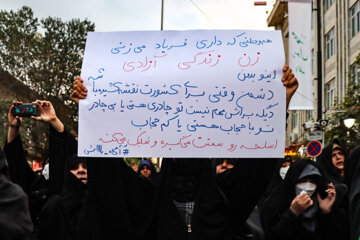 هموطنی که داری فریاد میزنی
زن زندگی آزادی
اینو ببین
دشمن وقتی برای کشورت نقشه کشید
دیگه براش مهم نیست تو چادری هستی یا بی چادر
تو با حجاب هستی یا کم حجاب
اسلحه رو سمتت میگیره و شلیک میکنه